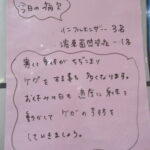 今日の病欠
インフルエンザー3名
溶連菌感染症ー1名
寒いと身体がちぢこまり
ケガをする事も多くなります。
お休みの日も適度に身体を
動かしてケガの予防を
していきましょう。